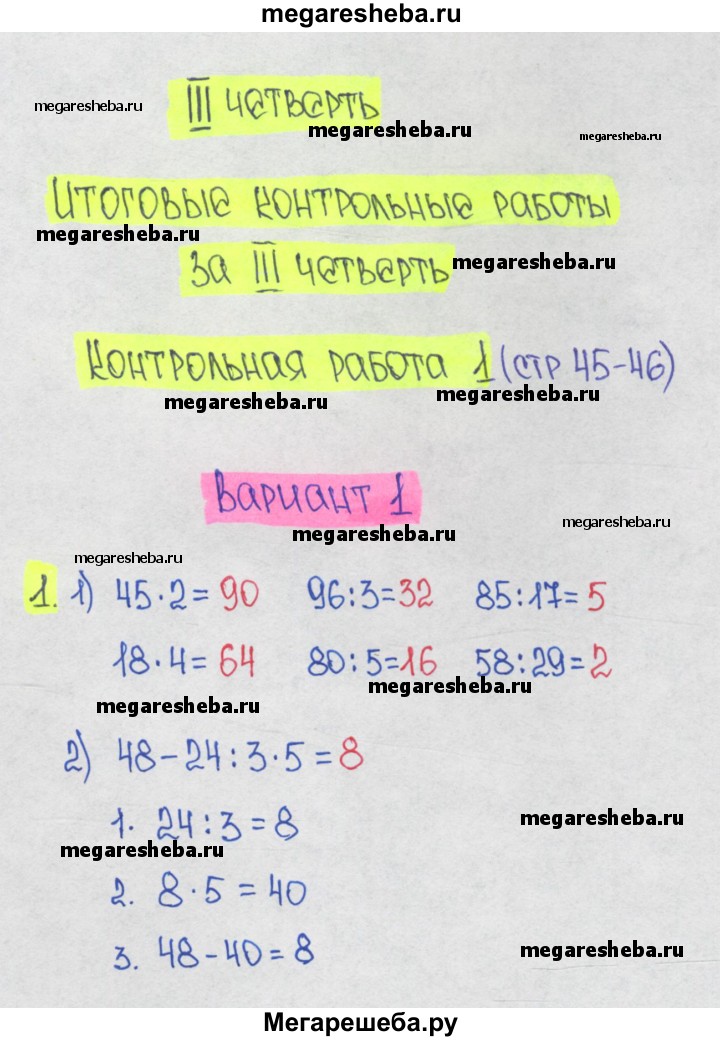 megaresheba.ru
III четверть
megaresheba.ru
megaresheba.ru
megaresheba.ru
Итоговые контрольные работы
megaresheba.ru
за III четверть
megaresheba.ru
Контрольная работа 1 (стр 45-46)
megaresheba.ru
megaresheba.ru
Вариант 1
megaresheba.ru
megaresheba.ru
megaresheba.ru
1. 1) 45·2=90 96:3=32 85:17=5
18·4=64 80:5=16 58:29=2
megaresheba.ru
megaresheba.ru
2) 48-24:3·5=8
1. 24:3=8
megaresheba.ru
megaresheba.ru
2. 8·5=40
3. 48-40=8
megaresheba.ru
Мегарешеба.ру